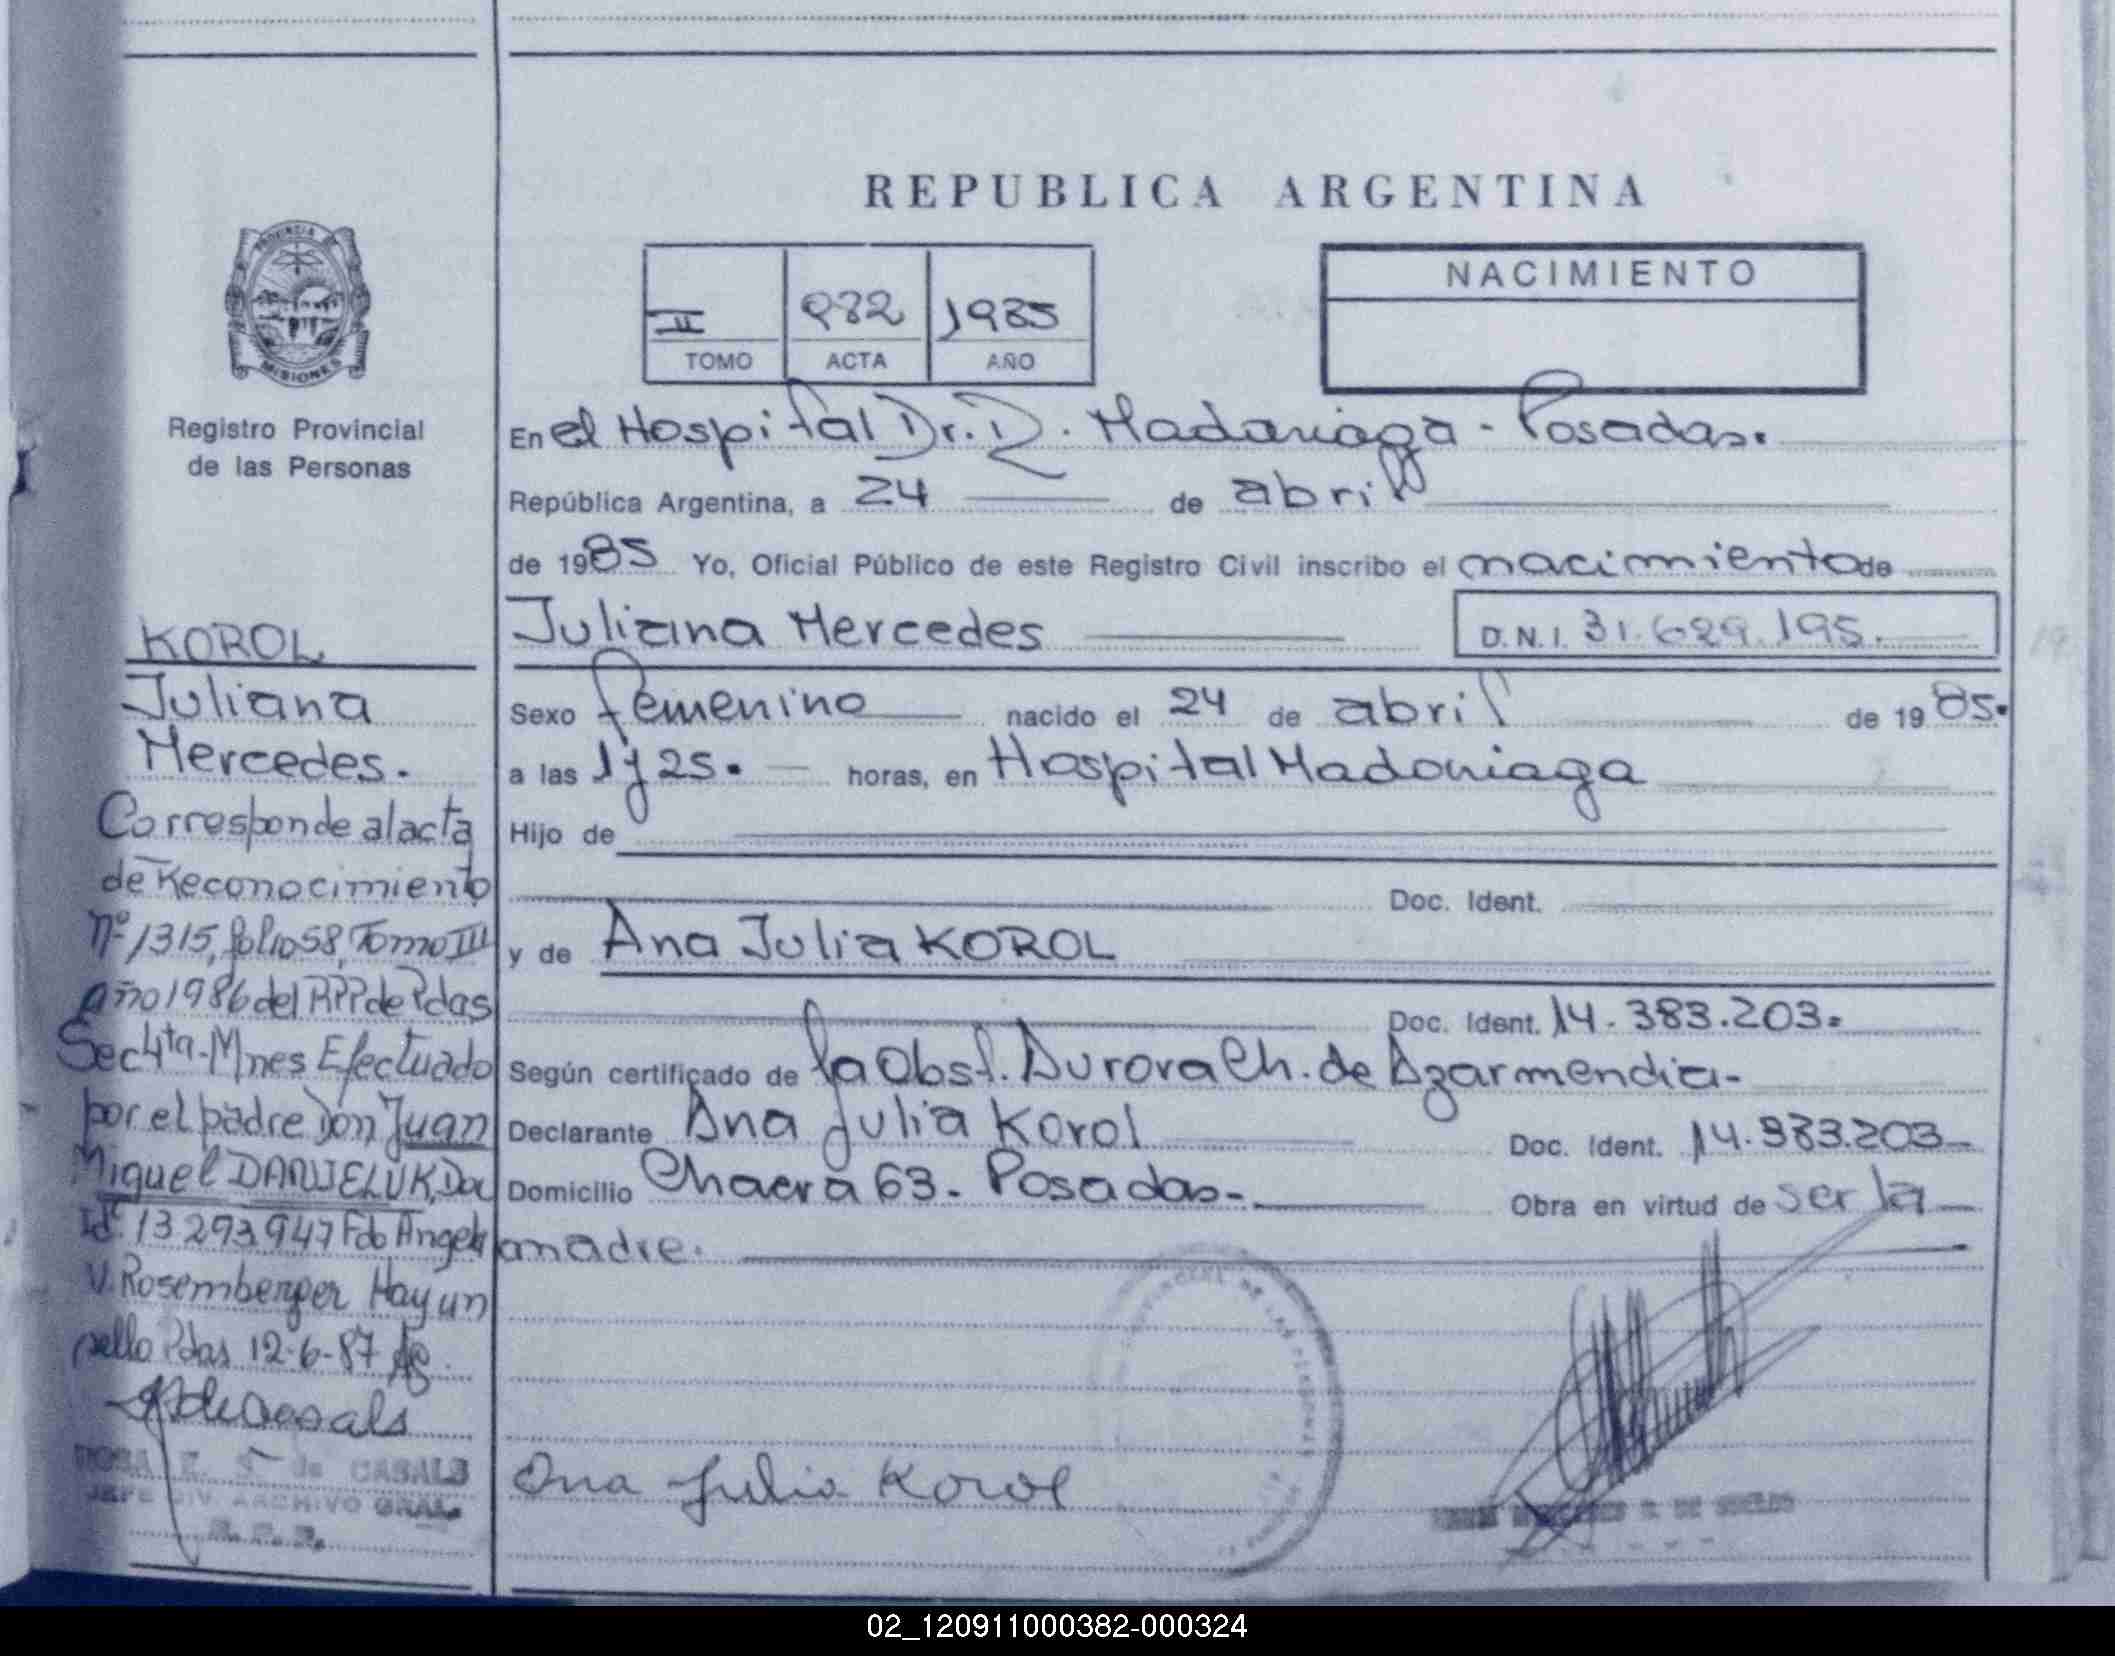 REPUBLICA ARGENTINA
PROVINCIA DE
MISIONES
Registro Provincial
de las Personas
II 982 1985
TOMO ACTA AÑO
NACIMIENTO
En el Hospital Dr. R. Madariaga - Posadas.
República Argentina, a 24 de abril
de 1985 Yo, Oficial Público de este Registro Civil inscribo el nacimiento de
Juliana Mercedes D.N.I. 31.629.195.
Sexo femenino nacido el 24 de abril de 1985.
a las 1y25. horas, en Hospital Madariaga
Hijo de
Doc. Ident.
y de Ana Julia KOROL
Doc. Ident. 14.383.203.
Según certificado de la Obst. Aurora Ch. de Azarmendia-
Declarante Ana Julia Korol Doc. Ident. 14.383.203
Domicilio Chacra 63. Posadas- Obra en virtud de ser la
madre.
Ana Julia Korol
KOROL
Juliana
Mercedes.
Corresponde al acta
de Reconocimiento
Nº 1315, folio 58, Tomo III
año 1986 del RPP de Pdas
Sec 4ta-Mnes Efectuado
por el padre Don Juan
Miguel DANIELUK, Doc
Id. 13293947 Fdo Angela
V. Rosemberger Hay un
sello Pdas 12-6-87
de CASALS
JEFE DIV. ARCHIVO GRAL.
02_120911000382-000324